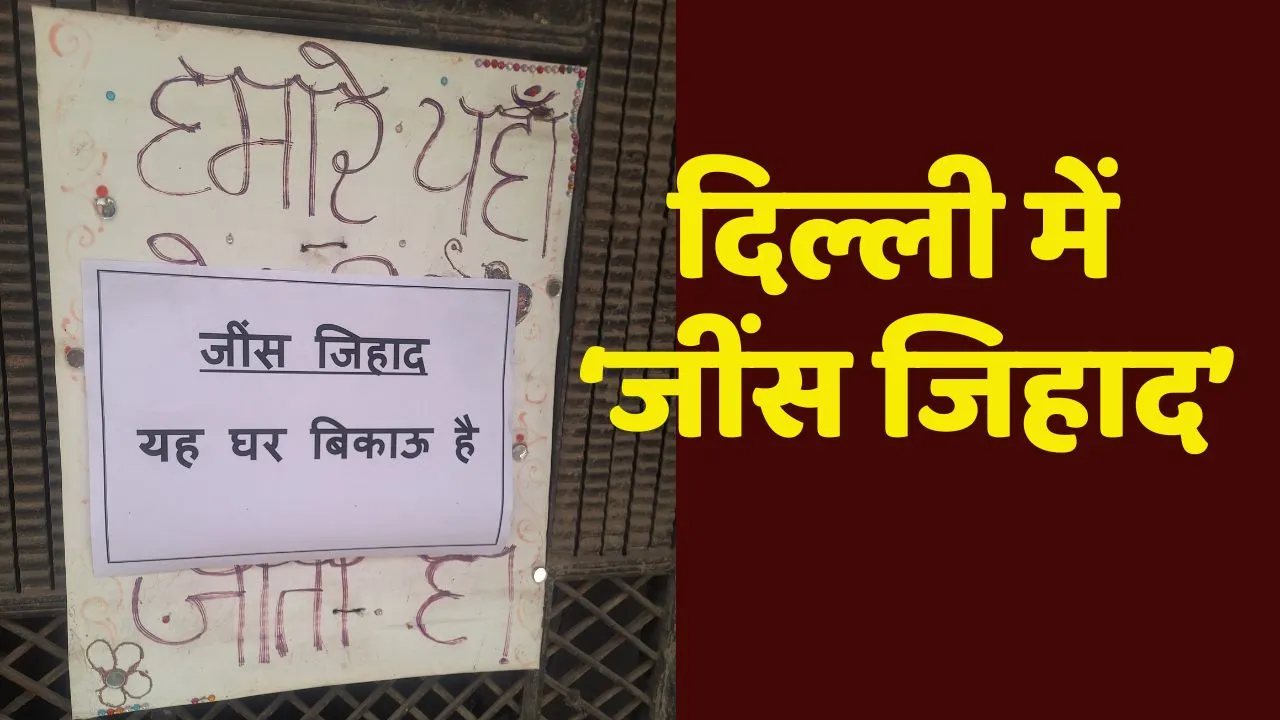 हमारे यहाँ
जींस जिहाद
यह घर बिकाऊ है
जाता है।
दिल्ली में
‘जींस जिहाद’